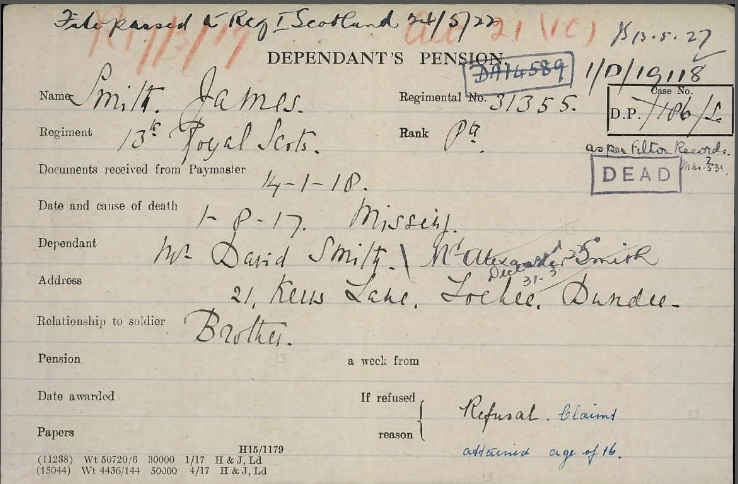 File passed to Reg I Scotland 24/5/22
DEPENDANT'S PENSION
DA14589
1/D/19118
Name Smith. James.
Regimental No. 31355.
Case No.
D.P. 7186/
Regiment 13th Royal Scots.
Rank Pte.
as per Filtor Records.
DEAD
Documents received from Paymaster 14-1-18.
Date and cause of death 1-8-17. Missing.
Dependant Mr David Smith. \ Mr Alexander Smith
Deceased
31-3
Address 21, Kerrs Lane, Lochee, Dundee.
Relationship to soldier Brother.
Pension a week from
Date awarded
If refused reason { Refusal. Claimt
attained age of 16.
Papers
H15/1179
(11238) Wt 50720/6 30000 1/17 H & J, Ld
(15044) Wt 4436/144 50000 4/17 H & J, Ld